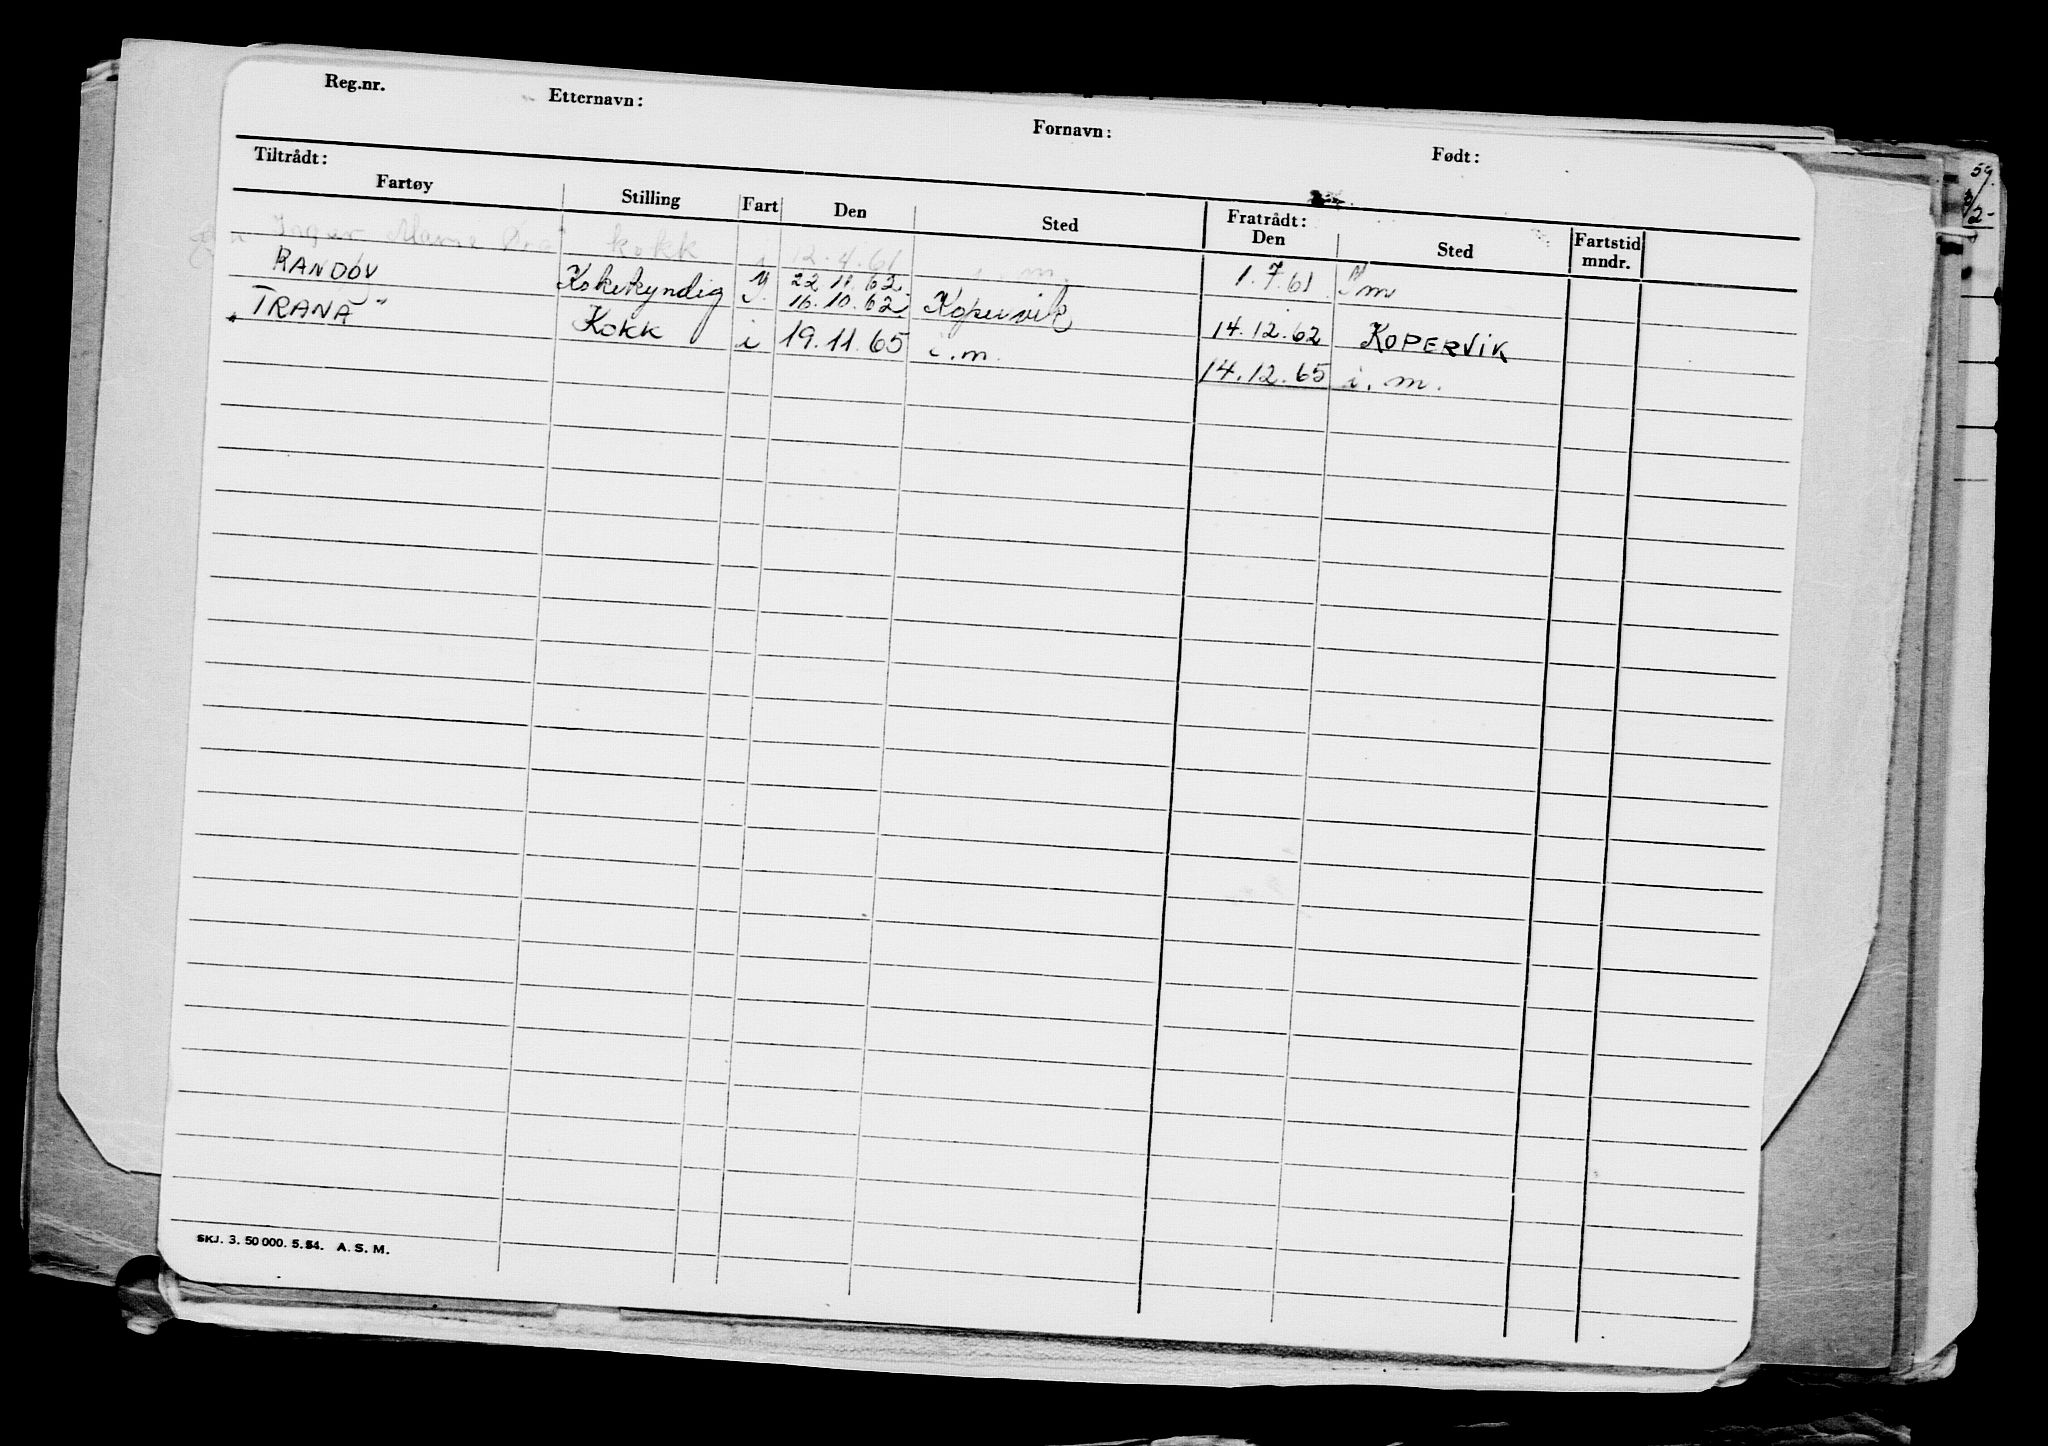 Reg.nr. Etternavn: Fornavn: Født:
Tiltrådt: Fratrådt:
Fartøy Stilling Fart Den Sted Den Sted Fartstid mndr.
Inger kokk i 12.4.61 i.m. 1.7.61 i m
RANDØY Kokekyndig 22.11.62
16.10.62 Kopervik 14.12.62 KOPERVIK
"TRANA" Kokk i 19.11.65 i.m. 14.12.65 i.m.
SKJ. 3. 50 000. 5.54. A. S. M.
59.
2-